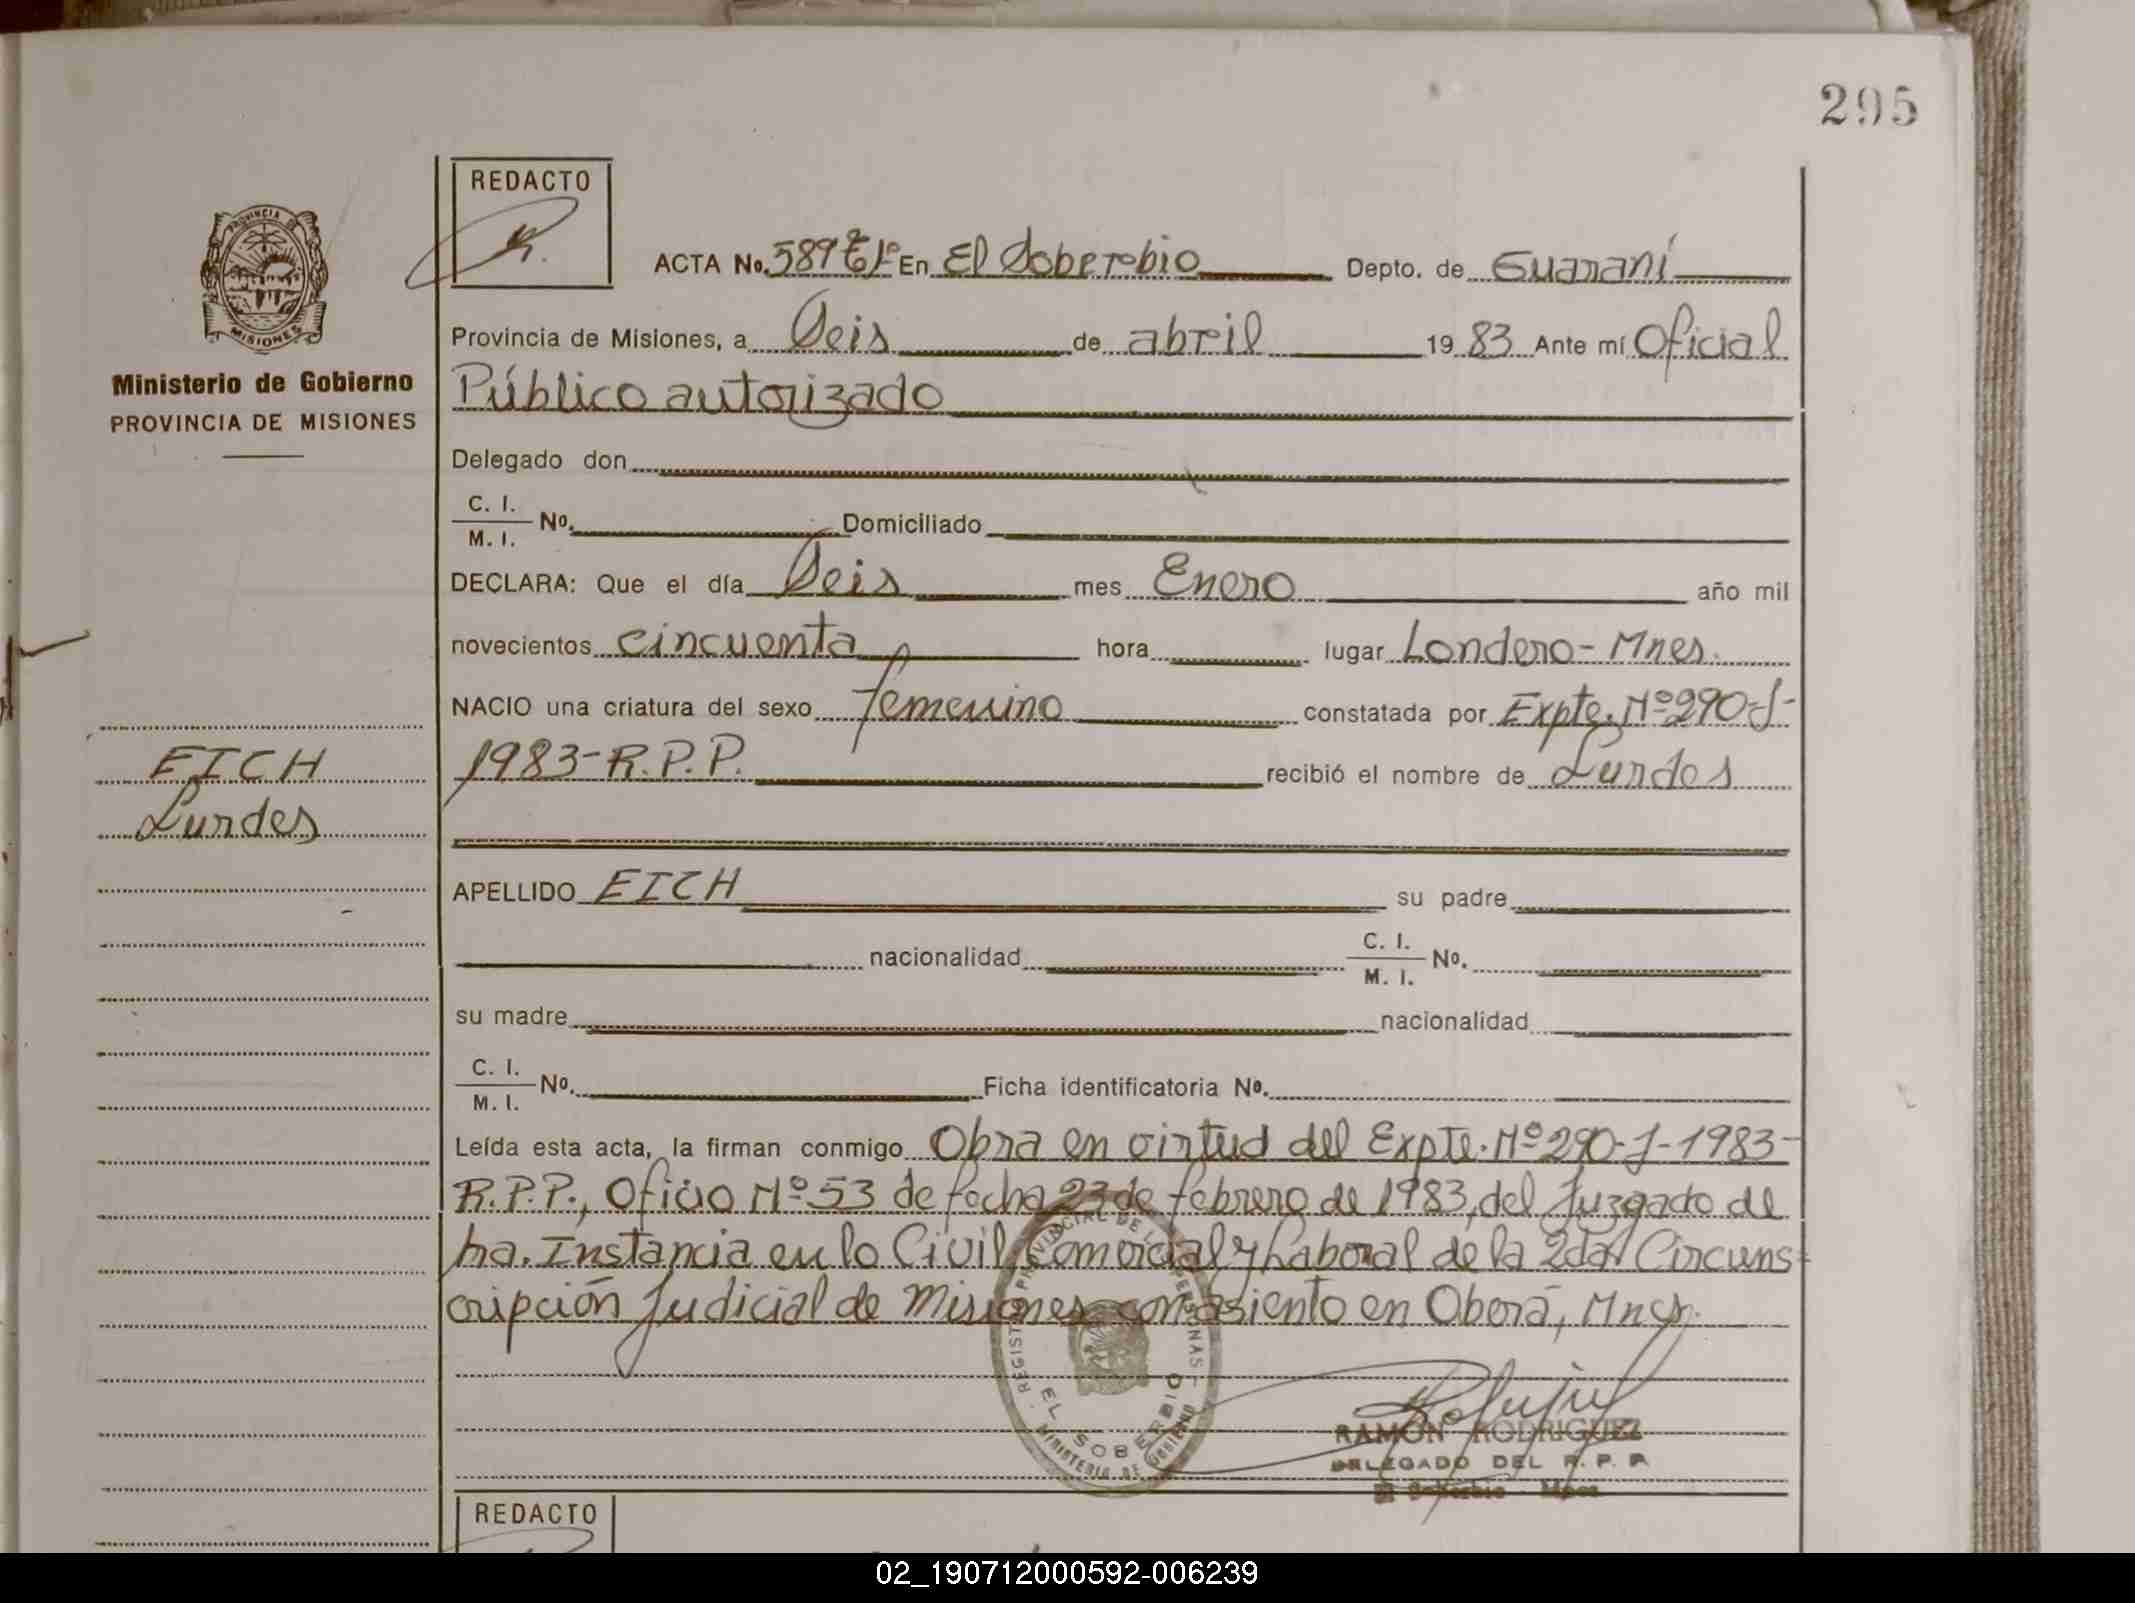 295
REDACTO
ACTA No. 589 Tº 1º En El Soberbio Depto. de Guaraní
Provincia de Misiones, a Seis de abril 1983 Ante mí Oficial
Público autorizado
Delegado don
C. I.
M. I. No. Domiciliado
DECLARA: Que el día Seis mes Enero año mil
novecientos cincuenta hora lugar Londero- Mnes.
NACIO una criatura del sexo femenino constatada por Expte. Nº 290-J-
1983-R.P.P. recibió el nombre de Lurdes
APELLIDO EICH su padre
nacionalidad C. I.
M. I. No.
su madre nacionalidad
C. I.
M. I. No. Ficha identificatoria No.
Leída esta acta, la firman conmigo Obra en virtud del Expte. Nº 290-J-1983-
R.P.P., Oficio Nº 53 de fecha 23 de febrero de 1983, del Juzgado de
1ra. Instancia en lo Civil, Comercial y Laboral de la 2da. Circuns-
cripción Judicial de Misiones con asiento en Oberá, Mnes.
PROVINCIA DE
MISIONES
Ministerio de Gobierno
PROVINCIA DE MISIONES
EICH
Lurdes
REGISTRO PROVINCIAL DE LAS PERSONAS
EL SOBERBIO
MINISTERIO DE GOBIERNO
RAMON RODRIGUEZ
DELEGADO DEL R. P. P.
El Soberbio - Mnes.
REDACTO
02_190712000592-006239